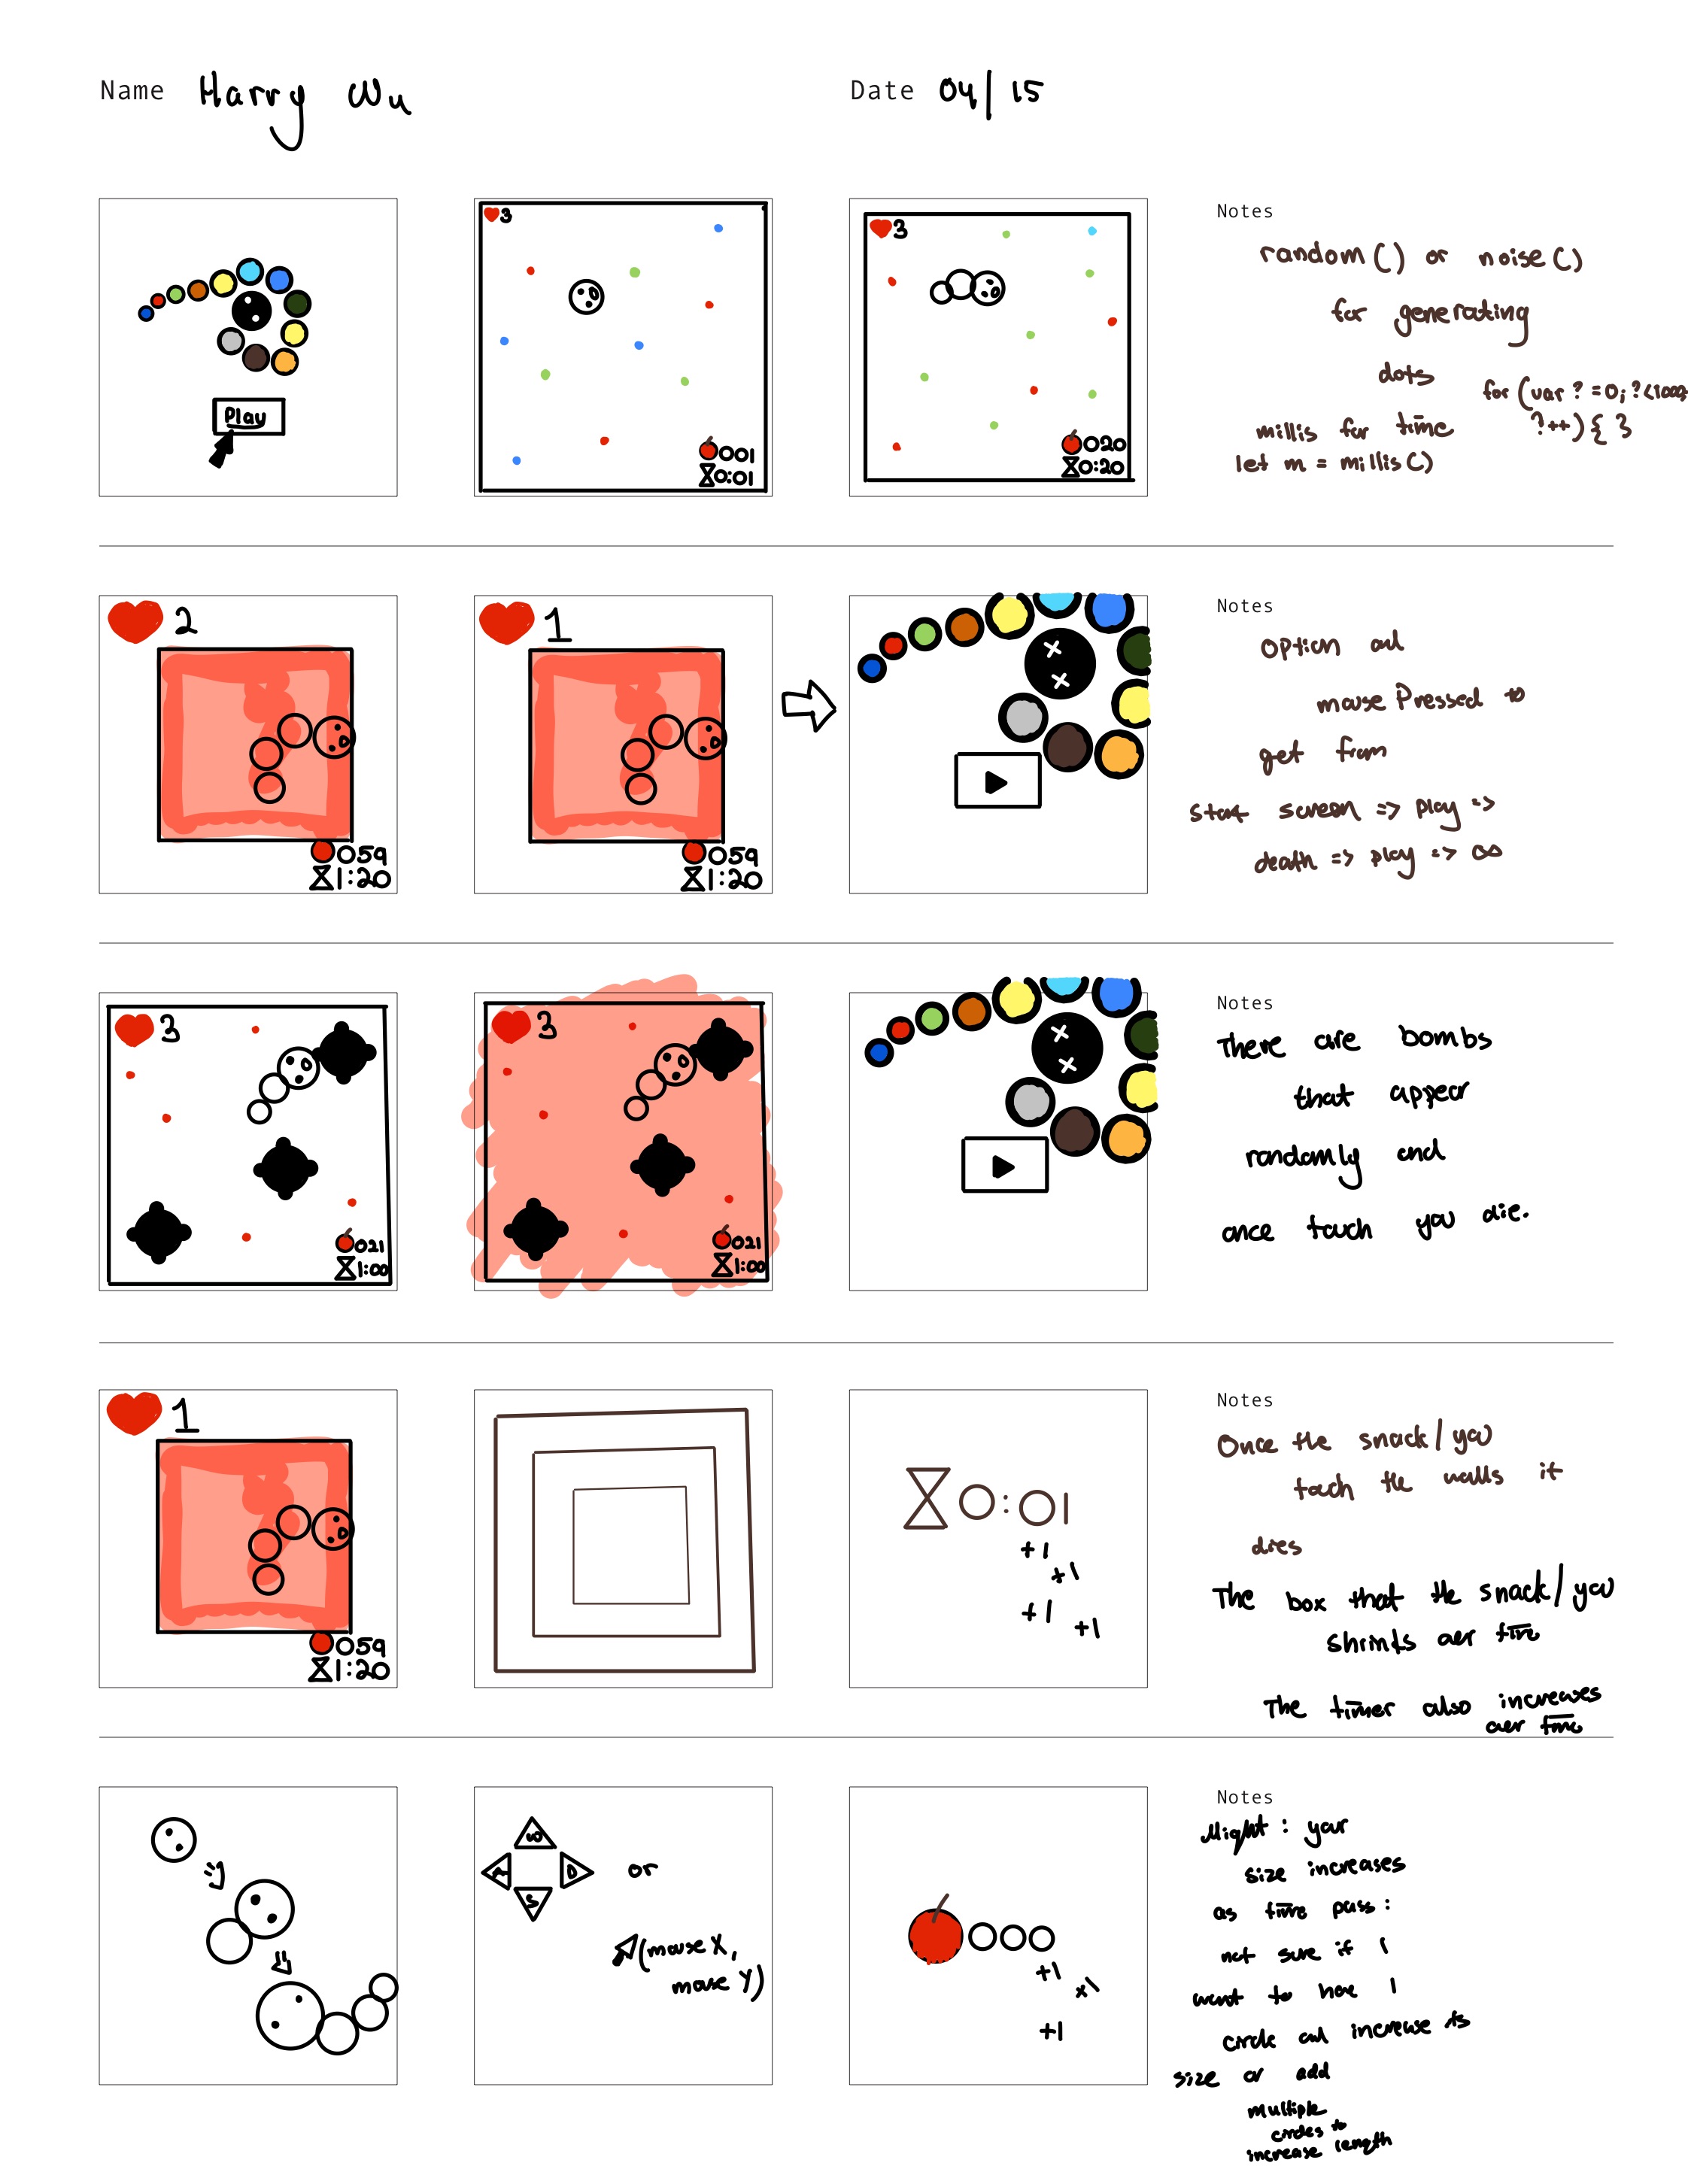 Name Harry Wu
Date 04/15
Play
3
001
0:01
3
020
0:20
Notes
random() or noise()
for generating
dots
for (var ? = 0; ? < 1000;
?++) { }
millis for time
let m = millis()
2
059
1:20
1
059
1:20
Notes
option and
mouse Pressed to
get from
start screen => play =>
death => play => ∞
3
021
1:00
3
021
1:00
Notes
There are bombs
that appear
randomly and
once touch you die.
1
059
1:20
0:01
+1
+1
+1
+1
Notes
Once the snack/you
touch the walls it
dies
The box that the snack/you
shrinks over time
The timer also increases
over time
A
D
S
or
(mouse X,
mouse Y)
000
+1
+1
+1
Notes
Might: your
size increases
as time pass:
not sure if I
want to have 1
circle and increase its
size or add
multiple
circles to
increase length